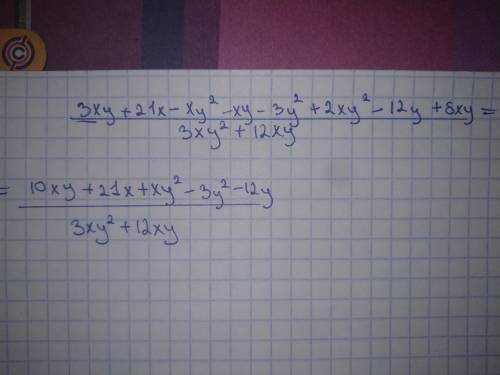 3xy + 21x - xy² - xy - 3y² + 2xy² - 12y + 8xy =
3xy² + 12xy
= 10xy + 21x + xy² - 3y² - 12y
3xy² + 12xy